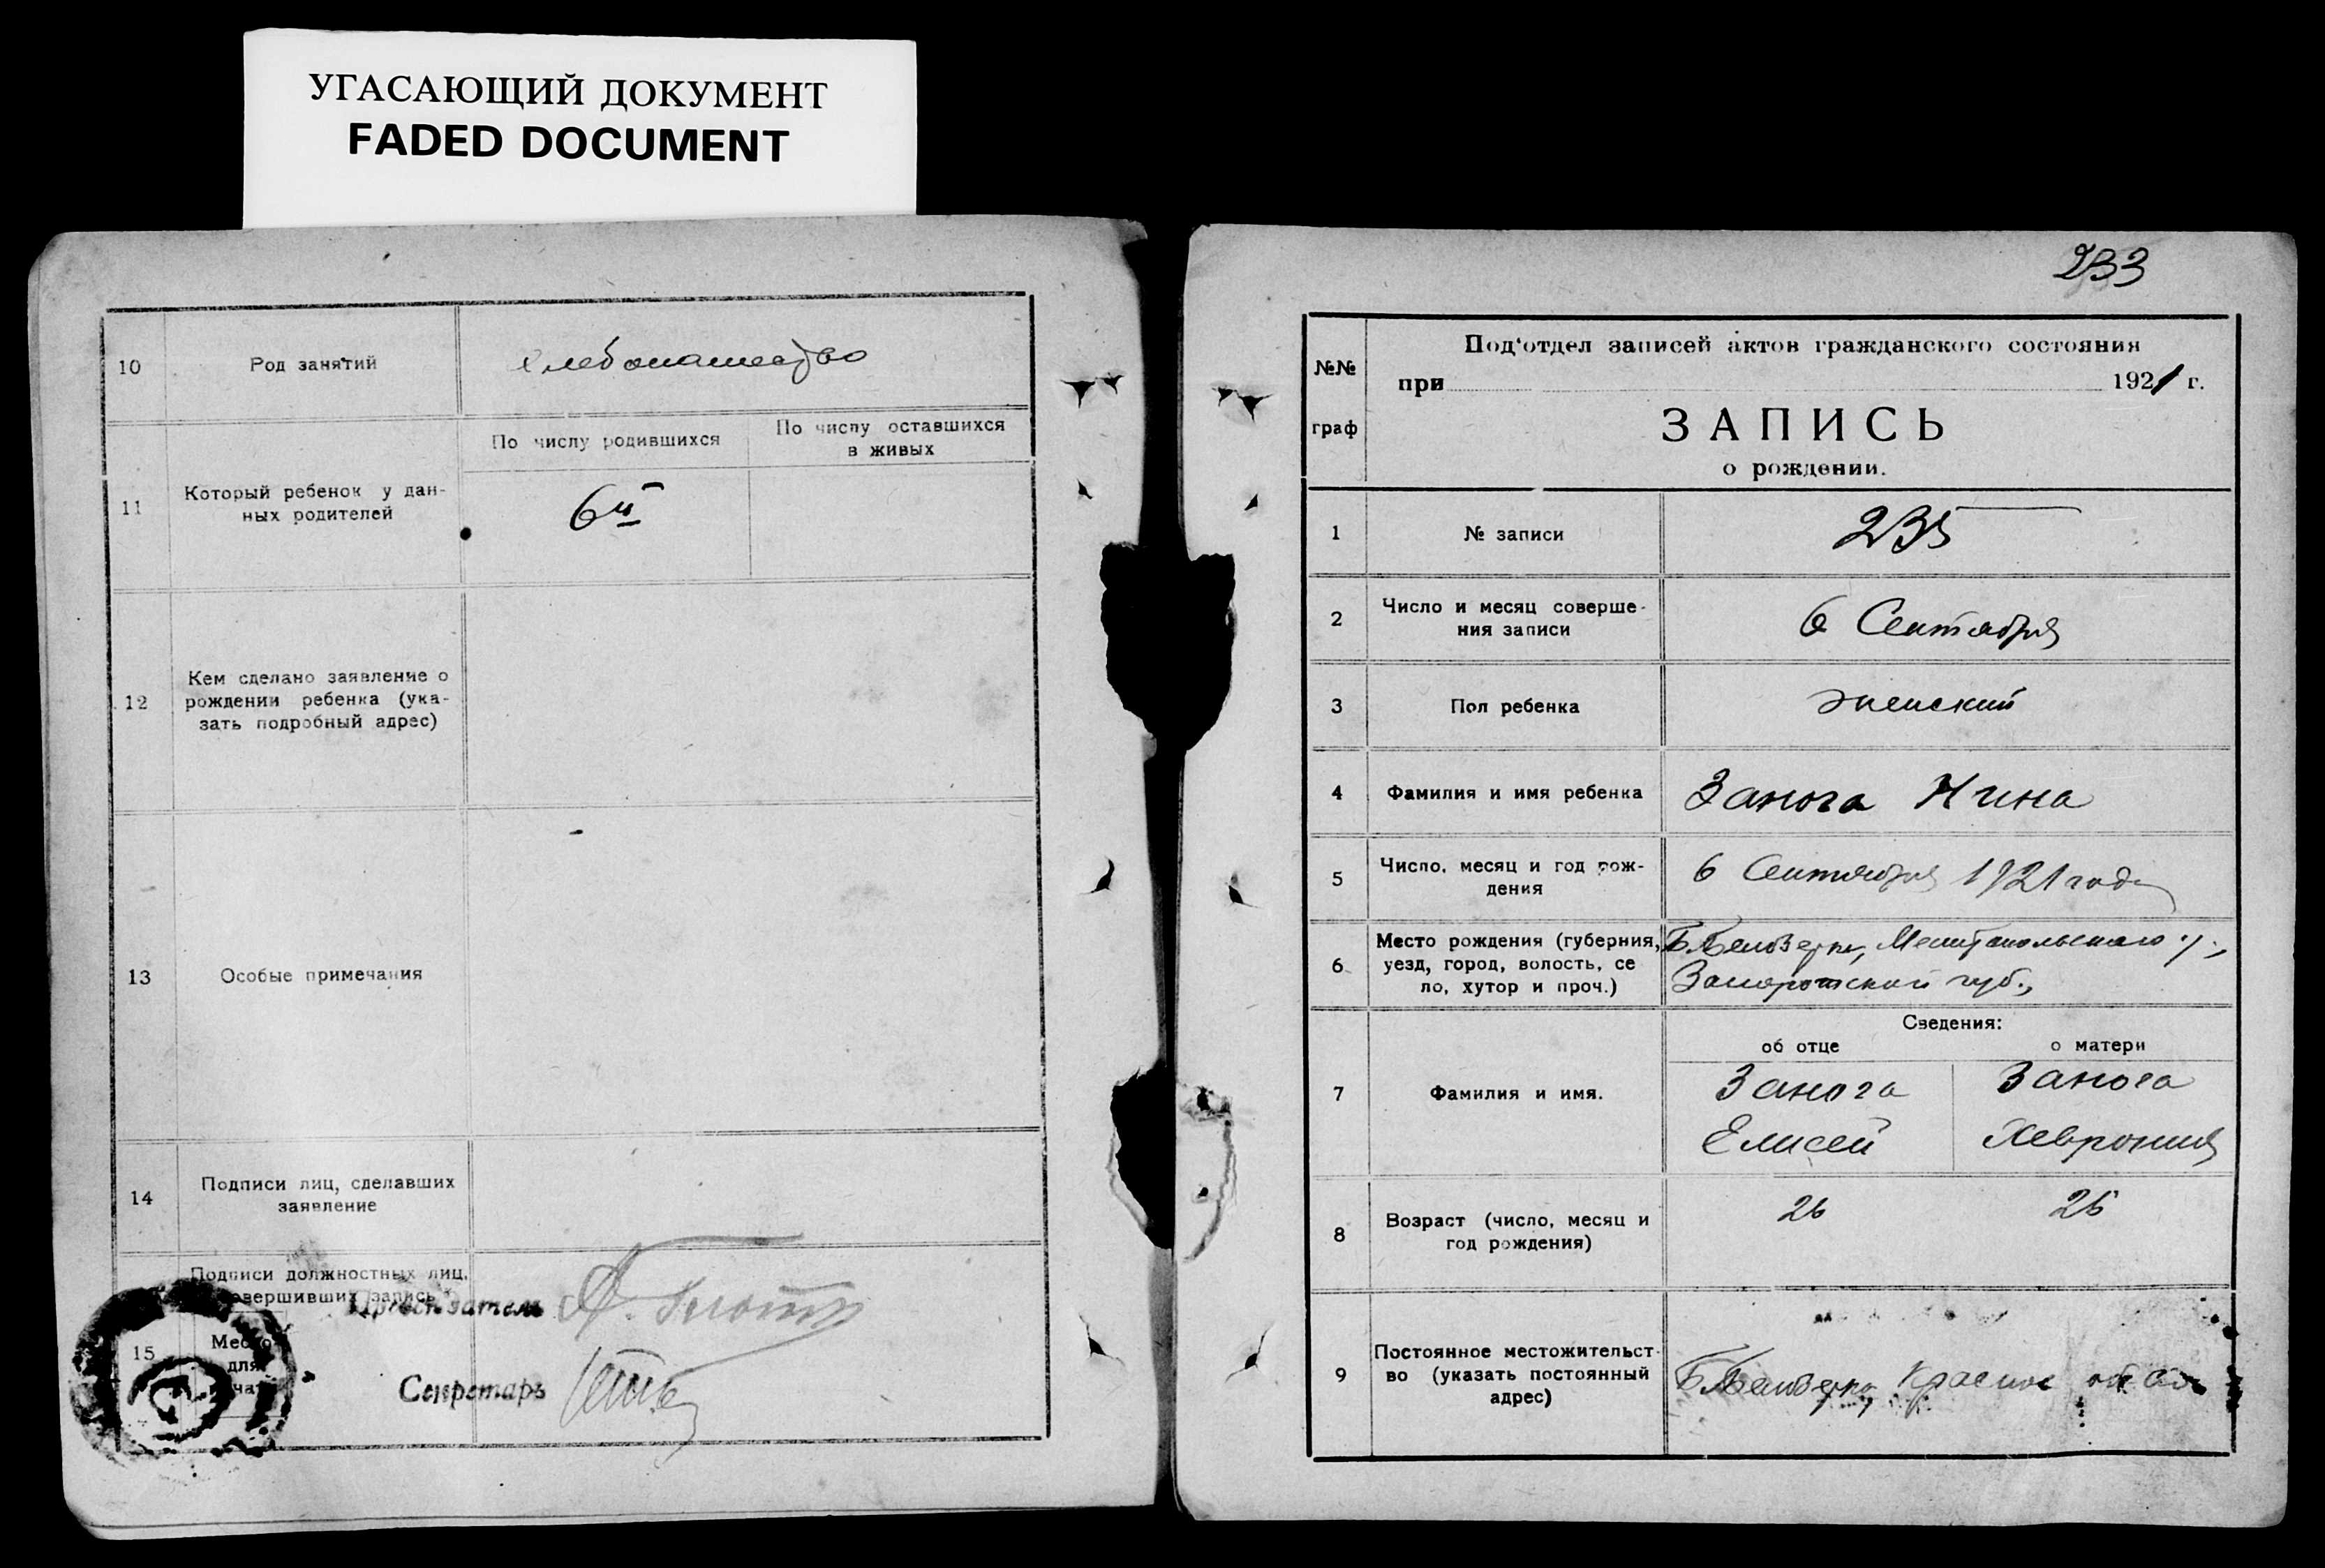 УГАСАЮЩИЙ ДОКУМЕНТ
FADED DOCUMENT
10 Род занятий хлебопашество
По числу родившихся По числу оставшихся
в живых
11 Который ребенок у дан-
ных родителей
6й
12 Кем сделано заявление о
рождении ребенка (ука-
зать подробный адрес)
13 Особые примечания
14 Подписи лиц, сделавших
заявление
Подписи должностных лиц,
совершивших запись
Председатель
15 Место
для
печати
Секретарь
233
№№
граф
Под‘отдел записей актов гражданского состояния
при 1921 г.
ЗАПИСЬ
о рождении.
1 № записи 235
2 Число и месяц соверше-
ния записи
6 Сентября
3 Пол ребенка женский
4 Фамилия и имя ребенка Занога Нина
5 Число, месяц и год рож-
дения
6 Сентября 1921 года
6 Место рождения (губерния,
уезд, город, волость, се
ло, хутор и проч.)
Б Белозерка, Мелитопольского у.,
Запорожской губ.,
Сведения:
об отце о матери
7 Фамилия и имя.
Занога Занога
Елисей Хеврония
8 Возраст (число, месяц и
год рождения)
26 25
9 Постоянное местожительст-
во (указать постоянный
адрес)
Б Белозерка